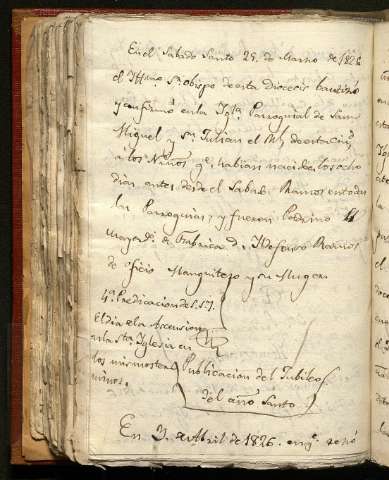 En el Sabado Santo 25. de Marzo de 1826
el Yllmo. Sr. obispo de esta Diocesis bautizó
y confirmó en la Igla. Parroquial de San
Miguel, y Sn. Julian el Rl. de esta Ciu.
a los Niños qe. habian nacido los ocho
dias antes desde el Sabdo. Ramos en todas
las Parroquias, y fueron Padrino el
mayordo. de Fabrica dn. Ildefonso Ramos
de oficio Manguitero y su Muger.
4a. Predicacion de S. S. I.
El dia de la Ascension
en la Sta. Iglesia en
los mismos terminos.
Publicacion del Jubileo
del año Santo
En 9. de Abril de 1826.